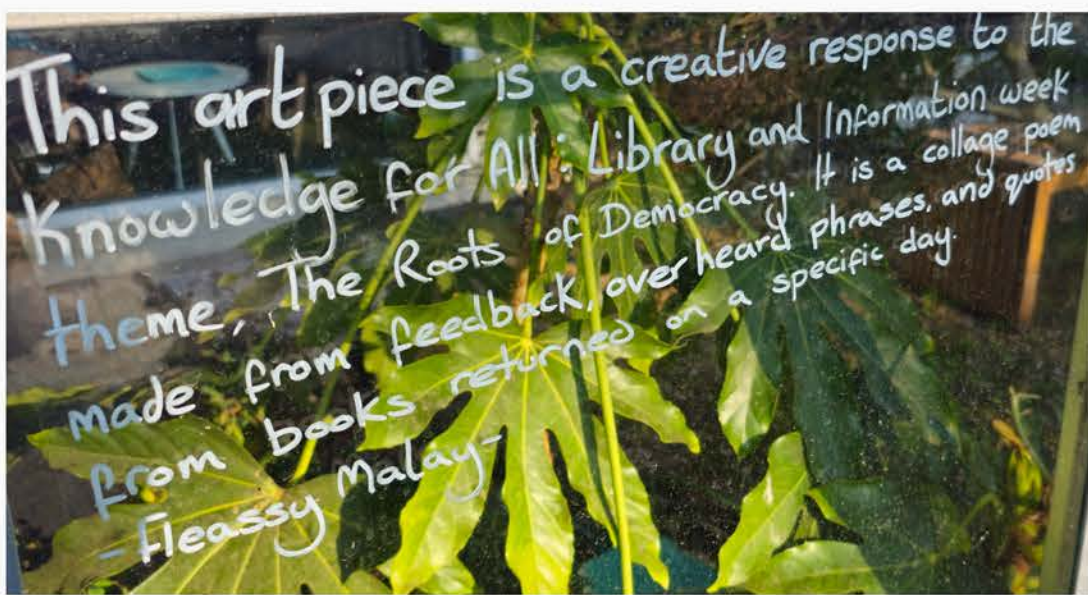 This art piece is a creative response to the
Knowledge for All: Library and Information week
theme, The Roots of Democracy. It is a collage poem
made from feedback, overheard phrases, and quotes
from books returned on a specific day.
- Fleassy Malay -